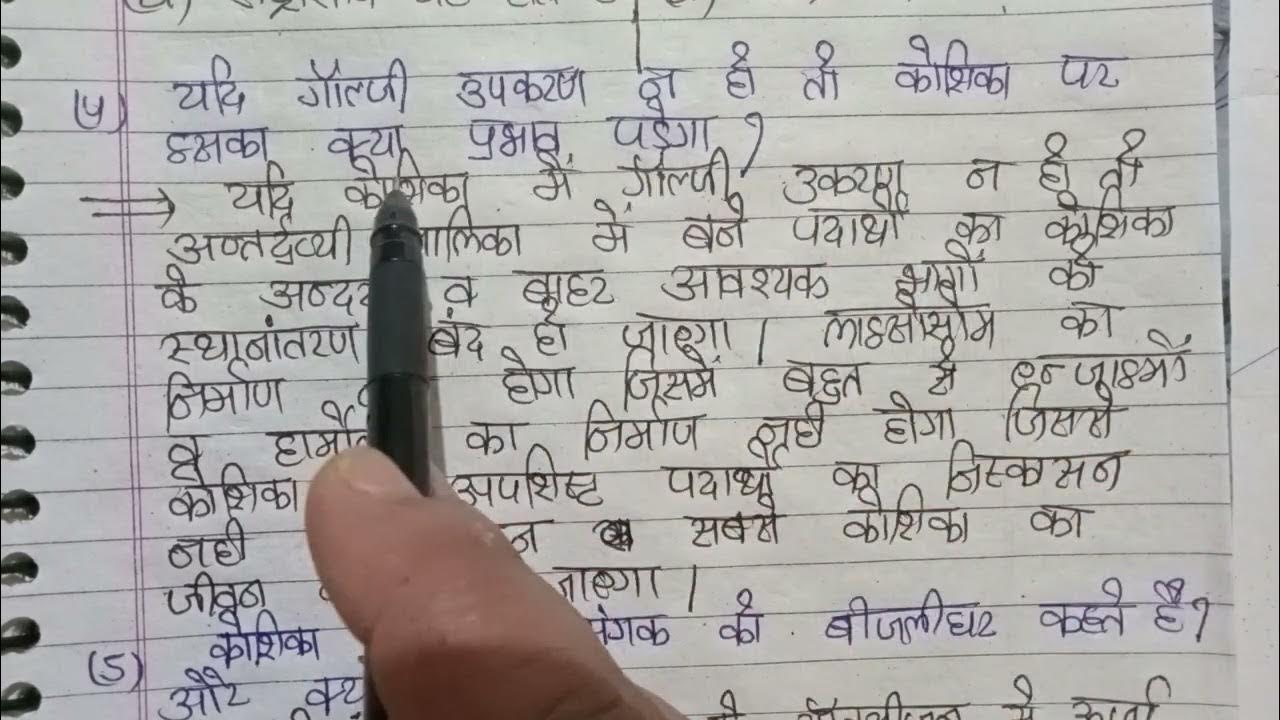 ४) यदि गॉल्जी उपकरण न हो तो कोशिका पर
इसका क्या प्रभाव पड़ेगा ?
⇒ यदि कोशिका में गॉल्जी उकरण न हो तो
अन्तर्द्रव्यी जालिका में बने पदार्थो का कोशिका
के अन्दर व बाहर आवश्यक भागों को
स्थानांतरण बंद हो जाएगा। लाइसोसोम का
निर्माण होगा जिसमें बहुत से इन्जाइमों
व हार्मो का निर्माण नही होगा जिससे
कोशिका अपशिष्ट पदार्थो का निस्कासन
नही न सबसे कोशिका का
जीवन जाएगा।
(5) कोशिका को बीजलीघर कहते है?
और